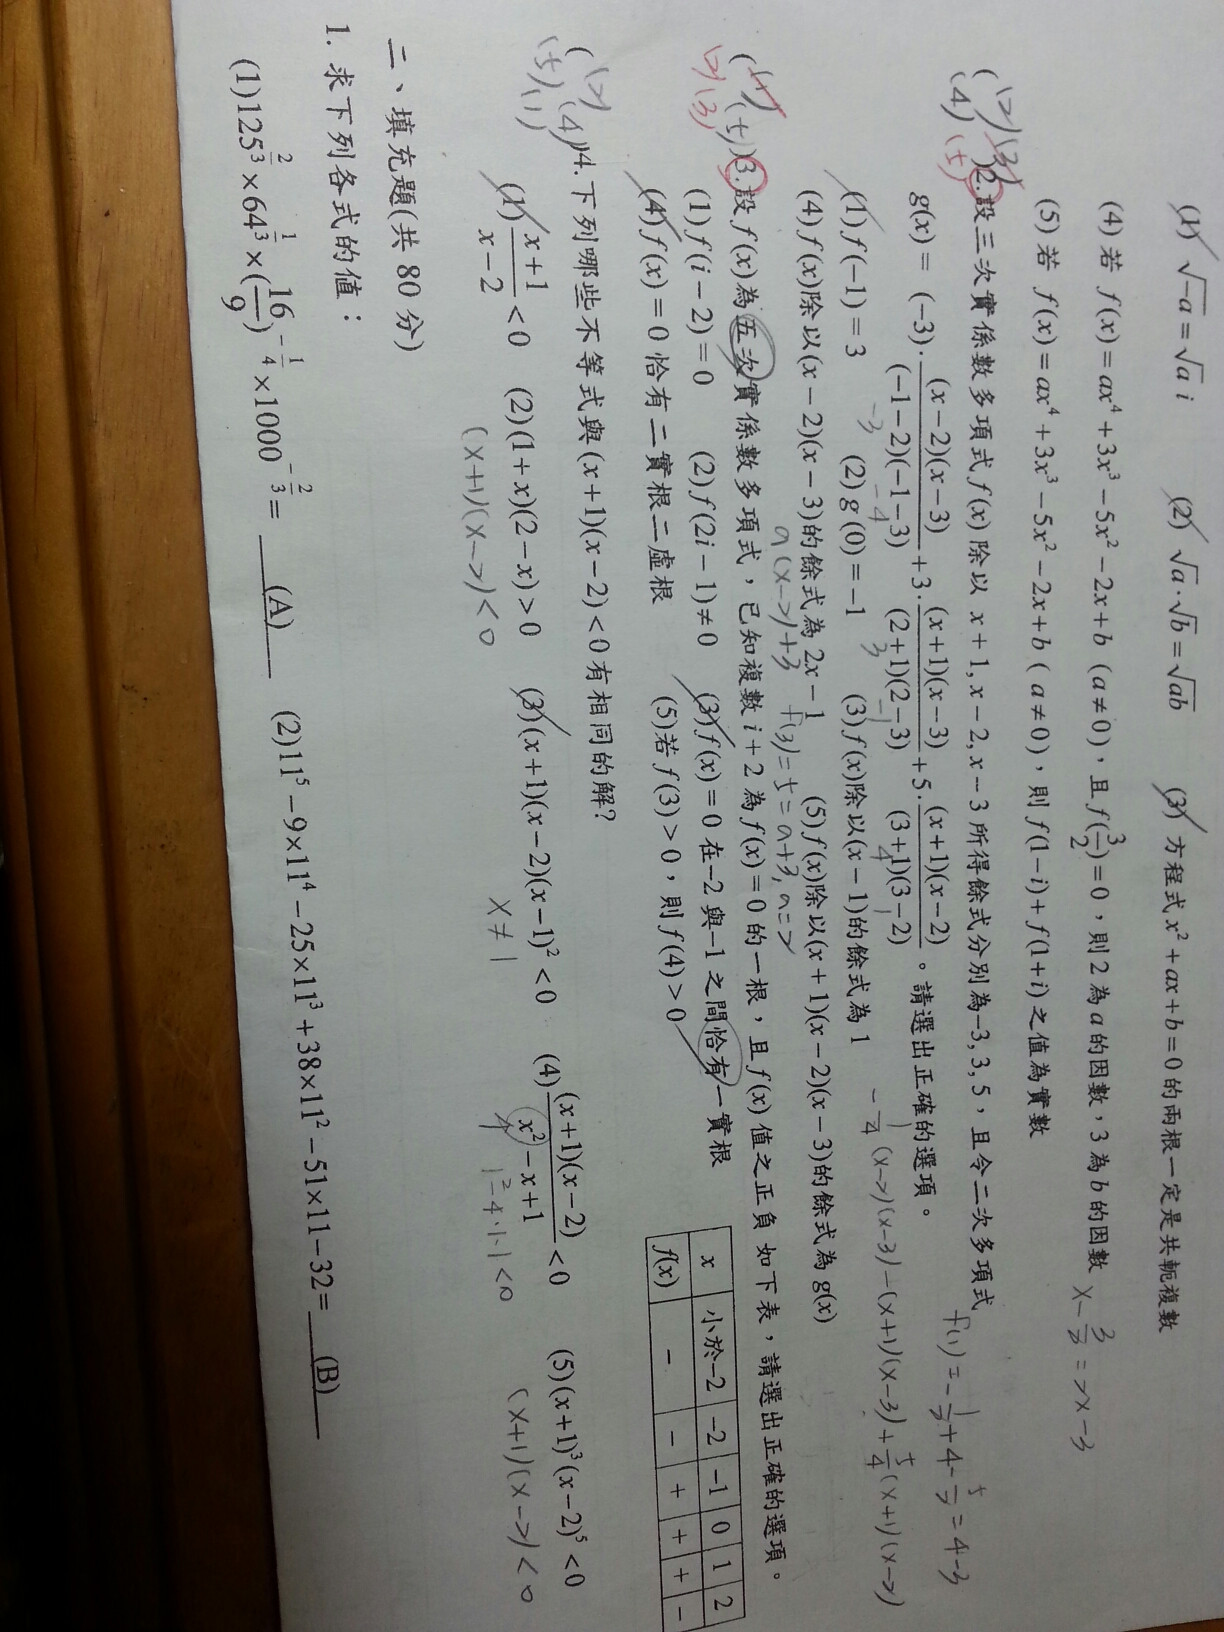 (1) √-a = √a i (2) √a·√b = √ab (3) 方程式 x² + ax + b = 0 的兩根一定是共軛複數
(4) 若 f(x) = ax⁴ + 3x³ − 5x² − 2x + b (a ≠ 0)，且 f(3/2) = 0，則 2 為 a 的因數，3 為 b 的因數
x − 3/2 = 2x − 3
(5) 若 f(x) = ax⁴ + 3x³ − 5x² − 2x + b (a ≠ 0)，則 f(1−i) + f(1+i) 之值為實數
(2)(3)
(4)(5)
)2. 設三次實係數多項式 f(x) 除以 x+1, x−2, x−3 所得餘式分別為 −3, 3, 5，且令二次多項式
f(1) = −1/2 + 4 − 5/2 = 4 − 3
g(x) = (−3)·(x−2)(x−3)/(−1−2)(−1−3) + 3·(x+1)(x−3)/(2+1)(2−3) + 5·(x+1)(x−2)/(3+1)(3−2)。請選出正確的選項。
−3 −4 3 −1 4 1
−1/4 (x−2)(x−3) − (x+1)(x−3) + 5/4 (x+1)(x−2)
(1) f(−1) = 3 (2) g(0) = −1 (3) f(x)除以(x−1)的餘式為 1
(4) f(x)除以(x−2)(x−3)的餘式為 2x−1 (5) f(x)除以(x+1)(x−2)(x−3)的餘式為 g(x)
a(x−2)+3 f(3) = 5 = a+3, a = 2
(5)
(2)(3)
)3. 設 f(x) 為五次實係數多項式，已知複數 i+2 為 f(x) = 0 的一根，且 f(x) 值之正負如下表，請選出正確的選項。
(1) f(i−2) = 0 (2) f(2i−1) ≠ 0 (3) f(x) = 0 在−2 與−1 之間恰有一實根
(4) f(x) = 0 恰有二實根二虛根 (5)若 f(3) > 0，則 f(4) > 0
x 小於−2 −2 −1 0 1 2
f(x) − − + + + −
(2)(4)
(5)(1)
)4. 下列哪些不等式與 (x+1)(x−2) < 0 有相同的解?
(1) x+1/x−2 < 0 (2)(1+x)(2−x) > 0 (3)(x+1)(x−2)(x−1)² < 0 (4) (x+1)(x−2)/x²−x+1 < 0 (5)(x+1)³(x−2)⁵ < 0
(x+1)(x−2) < 0 x ≠ 1 1²−4·1·1 < 0 (x+1)(x−2) < 0
二、填充題(共 80 分)
1. 求下列各式的值：
(1)125^(2/3) × 64^(1/3) × (16/9)^(−1/4) × 1000^(−2/3) = (A) (2)11⁵ − 9×11⁴ − 25×11³ + 38×11² − 51×11 − 32 = (B)